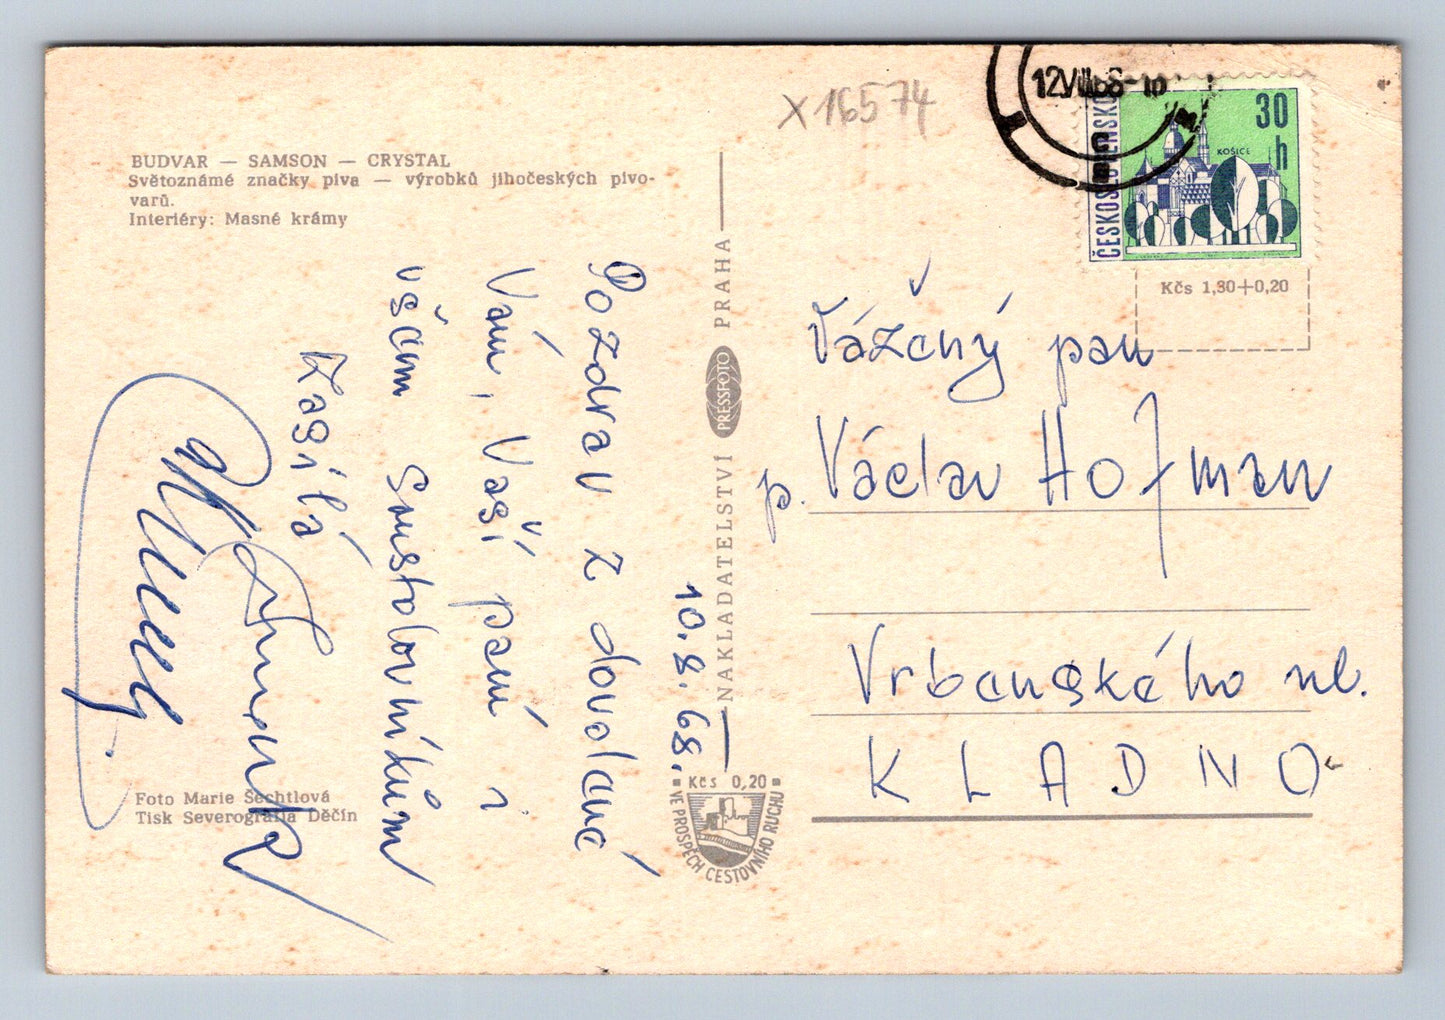 BUDVAR — SAMSON — CRYSTAL
Světoznámé značky piva — výrobků jihočeských pivo-
varů.
Interiéry: Masné krámy
x 16574
12.VIII.68-10
ČESKOSLOVENSKO
30
h
KOŠICE
Kčs 1,30+0,20
10.8.68.
Pozdrav z dovolené
Vám, Vaší paní i
všem soustolovníkům
Zasílá
NAKLADATELSTVÍ
PRESSFOTO
PRAHA
Vážený pan
p. Václav Hofman
Vrbenského ul.
KLADNO
Foto Marie Šechtlová
Tisk Severografia Děčín
Kčs 0,20
VE PROSPĚCH CESTOVNÍHO RUCHU